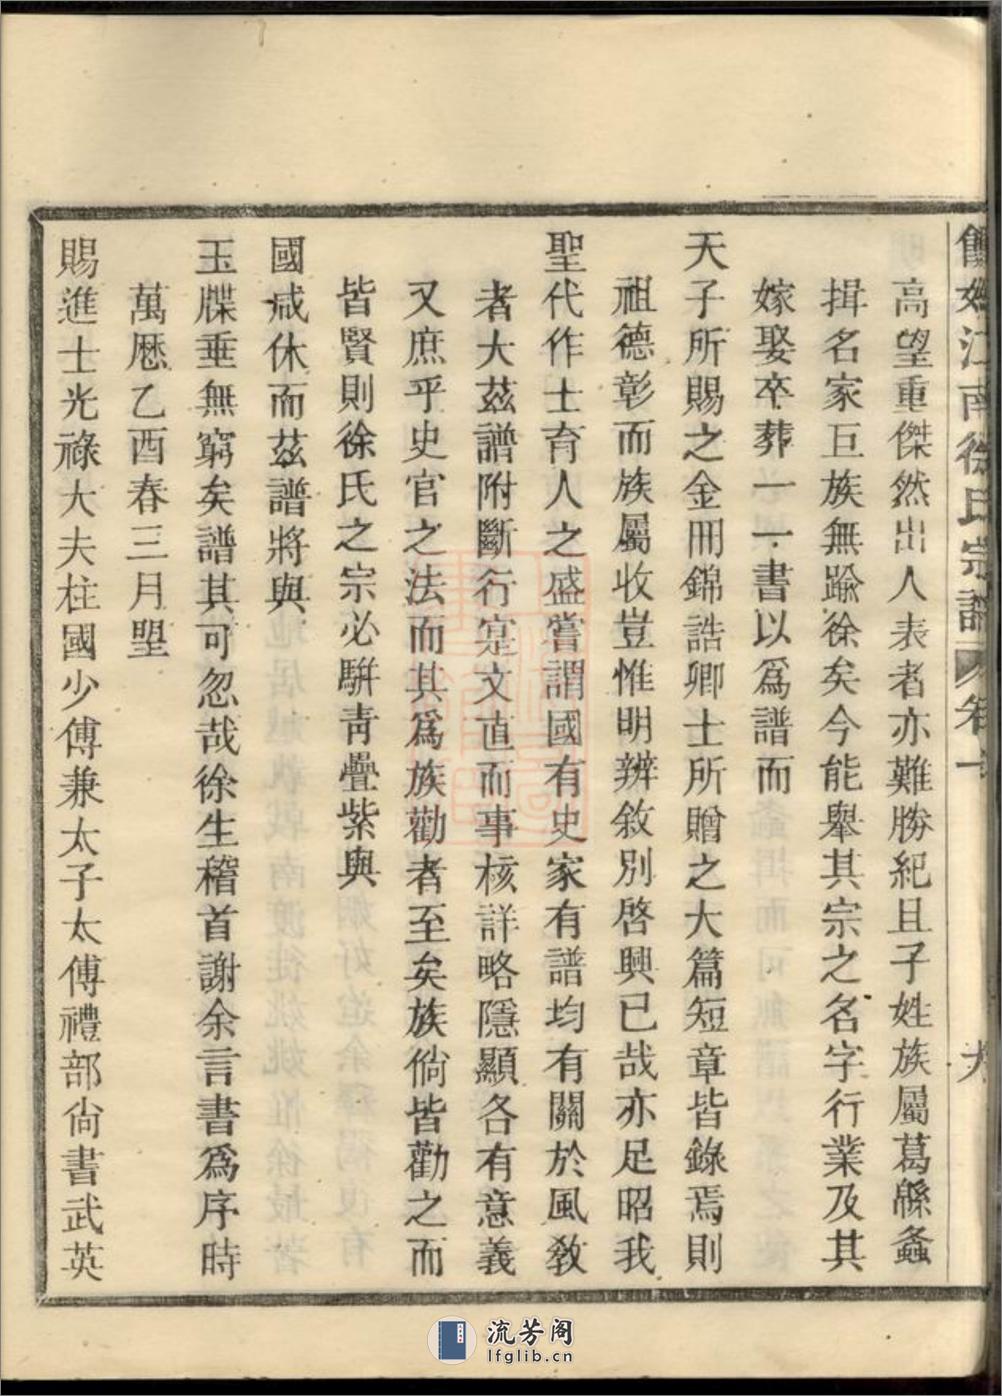 姚江南徐氏宗譜 卷一
高望重傑然出人表者亦難勝紀且子姓族屬葛緜螽
揖名家巨族無踰徐矣今能舉其宗之名字行業及其
嫁娶卒葬一一書以爲譜而
天子所賜之金冊錦誥卿士所贈之大篇短章皆錄焉則
祖德彰而族屬收豈惟明辨敘別啓興已哉亦足昭我
聖代作士育人之盛嘗謂國有史家有譜均有關於風敎
者大茲譜附斷行寔文直而事核詳略隱顯各有意義
又庶乎史官之法而其爲族勸者至矣族倘皆勸之而
皆賢則徐氏之宗必駢靑疊紫與
國咸休而茲譜將與
玉牒垂無窮矣譜其可忽哉徐生稽首謝余言書爲序時
萬厯乙酉春三月朢
賜進士光祿大夫柱國少傅兼太子太傅禮部尙書武英
流芳阁
lfglib.cn